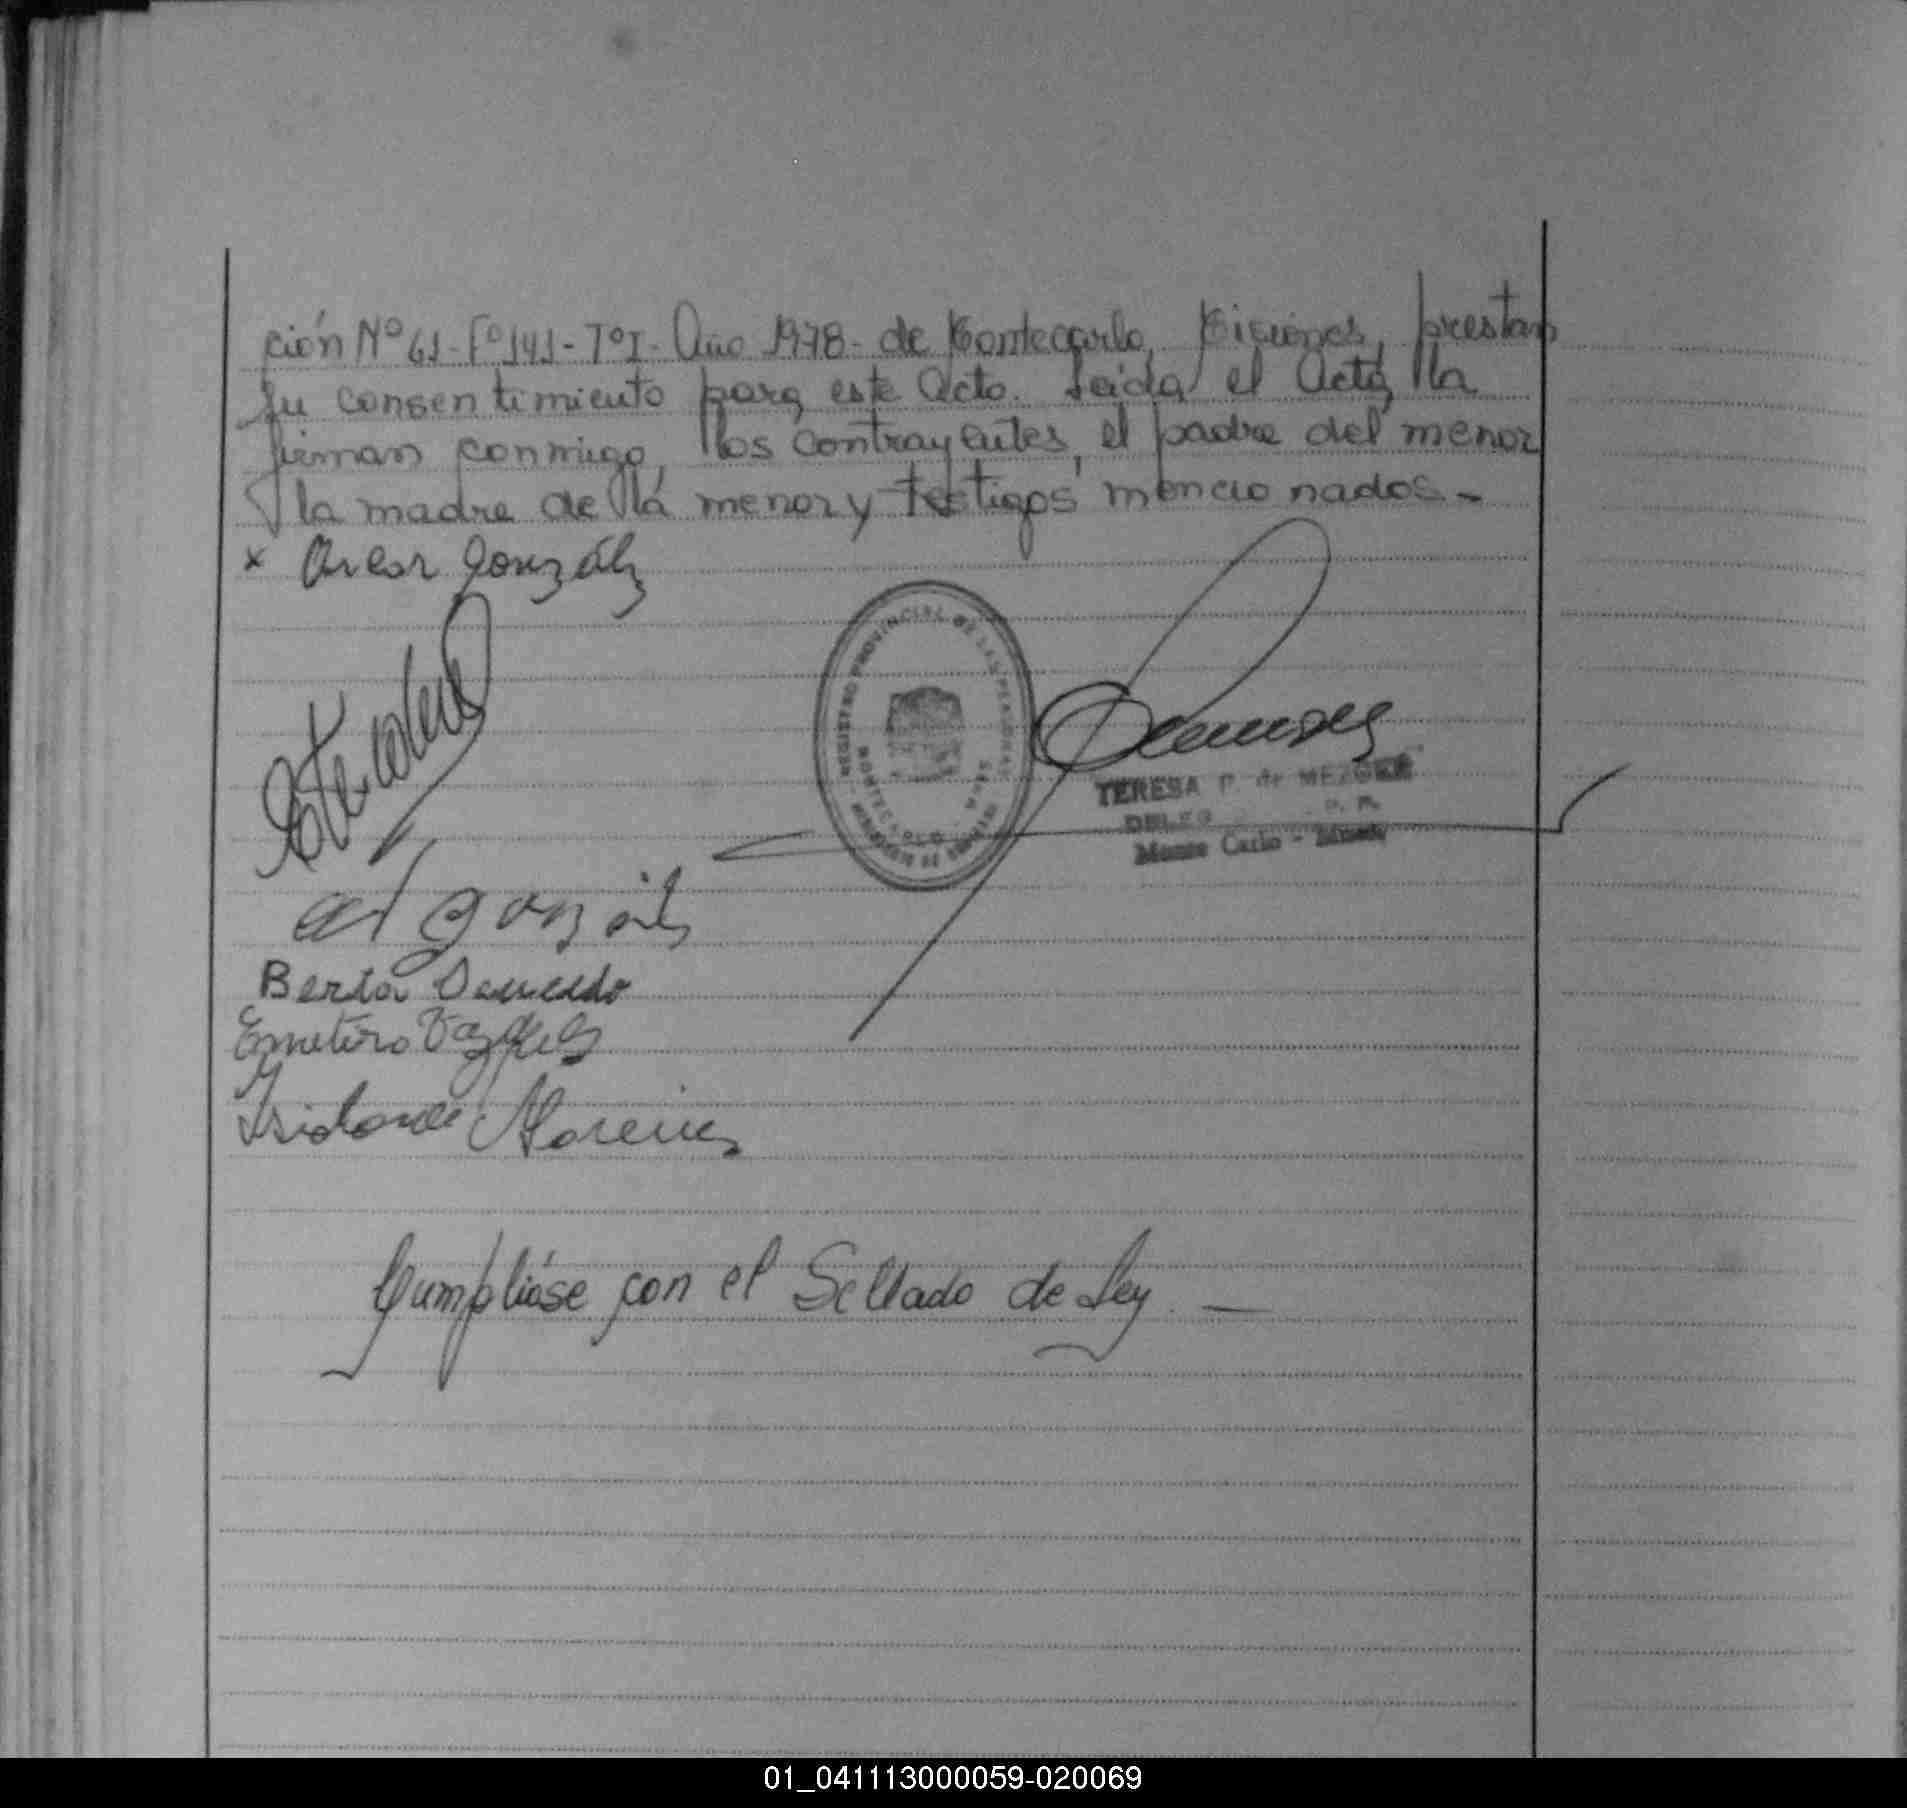 ción Nº 61-Fº141-TºI- Año 1978- de Montecarlo, Misiones, prestan
su consentimiento para este Acto. Leida el Acta, la
firman conmigo, los contrayentes, el padre del menor
la madre de la menor y testigos mencionados-
x Oscar González
REGISTRO PROVINCIAL DE LAS PERSONAS
TERESA P. de MEZGER
DELEG
Monte Carlo - Mnes
González
Berta
Emeterio
Cumplióse con el Sellado de Ley. —
01_041113000059-020069